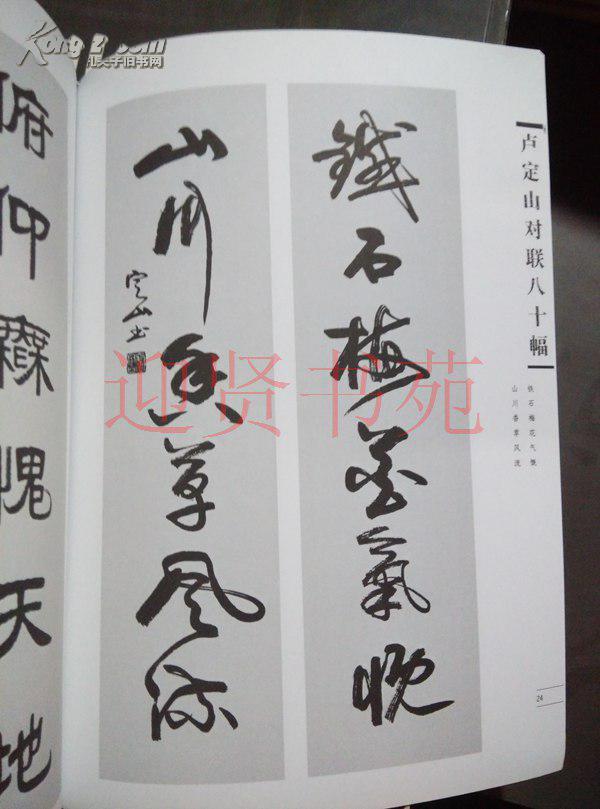 卢定山对联八十幅
铁石梅花气慨
山川香草风流
鐵石梅花氣慨
山川香草風流
定山书
24
俯仰無愧天地
迎贤书苑
孔夫子旧书网